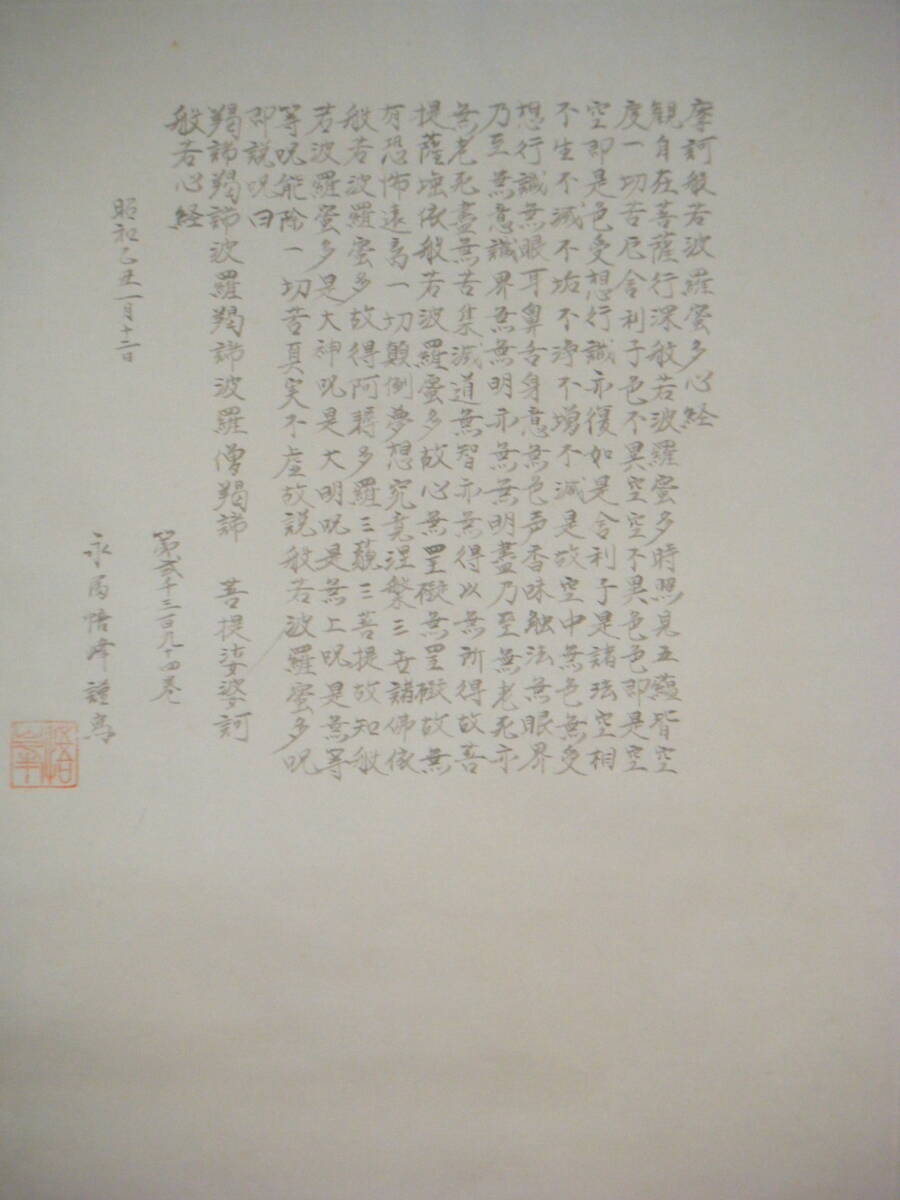 摩訶般若波羅蜜多心経
観自在菩薩行深般若波羅蜜多時照見五蘊皆空
度一切苦厄舎利子色不異空空不異色色即是空
空即是色受想行識亦復如是舎利子是諸法空相
不生不滅不垢不浄不増不減是故空中無色無受
想行識無眼耳鼻舌身意無色声香味触法無眼界
乃至無意識界無無明亦無無明盡乃至無老死亦
無老死盡無苦集滅道無智亦無得以無所得故菩
提薩埵依般若波羅蜜多故心無罣礙無罣礙故無
有恐怖遠離一切顛倒夢想究竟涅槃三世諸佛依
般若波羅蜜多故得阿耨多羅三藐三菩提故知般
若波羅蜜多是大神呪是大明呪是無上呪是無等
等呪能除一切苦真実不虚故説般若波羅蜜多呪
即説呪曰
羯諦羯諦波羅羯諦波羅僧羯諦 菩提娑婆訶
般若心経
昭和乙丑一月十二日
第弐千三百九十四巻
永 悟峰謹写